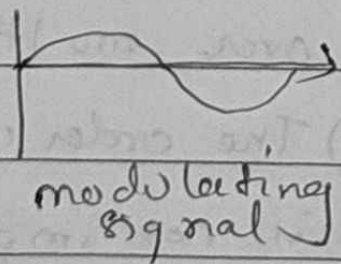 modulating
signal